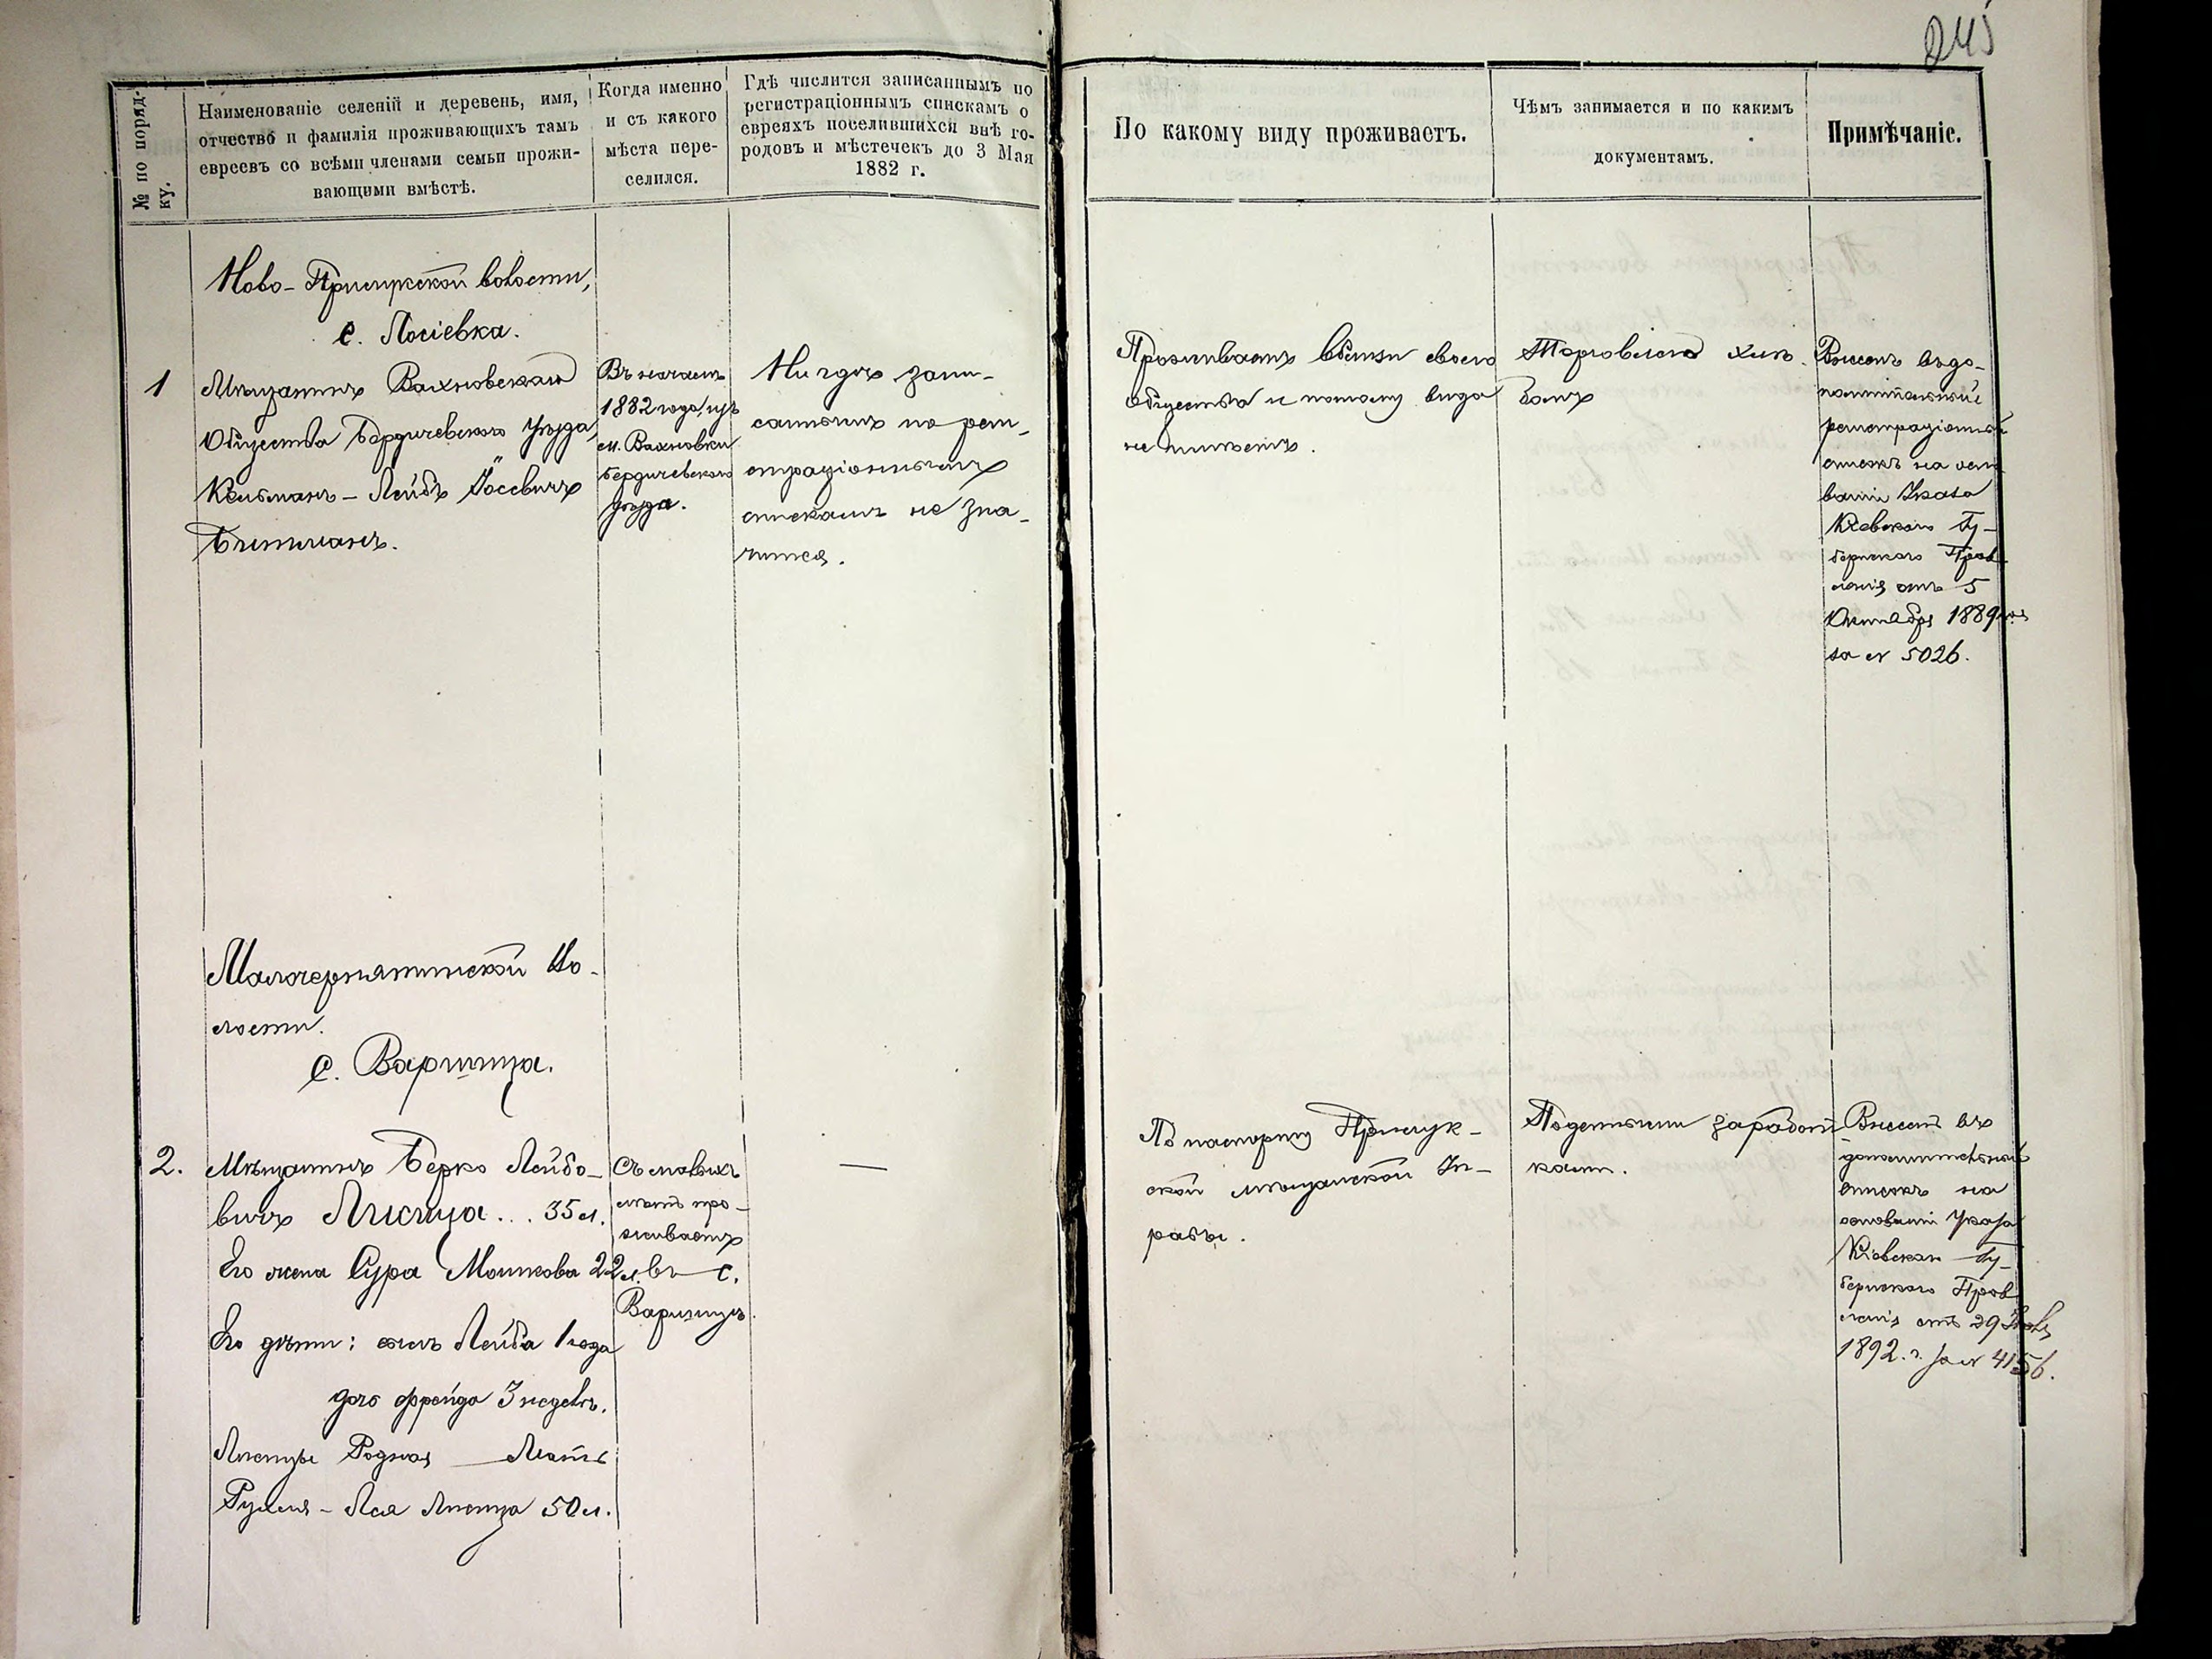 245
№ по поряд-
ку.
Наименованіе селеній и деревень, имя,
отчество и фамилія проживающихъ тамъ
евреевъ со всѣми членами семьи прожи-
вающими вмѣстѣ.
Когда именно
и съ какого
мѣста пере-
селился.
Гдѣ числится записаннымъ по
регистраціоннымъ спискамъ о
евреяхъ поселившихся внѣ го-
родовъ и мѣстечекъ до 3 Мая
1882 г.
По какому виду проживаетъ.
Чѣмъ занимается и по какимъ
документамъ.
Примѣчаніе.
Ново-Прилукской волости,
с. Лосіевка.
1
Мѣщанинъ Вахновскаго
Общества Бердичевскаго уѣзда,
Кельманъ-Лейбъ Іосевичъ
Въ началѣ
1882 года, изъ
м. Вахновки
Бердичевскаго
уѣзда.
Нигдѣ запи-
саннымъ по реги-
страціоннымъ
спискамъ не зна-
чится.
Проживаетъ вблизи своего
общества и потому вида
не имѣетъ.
Торговлею хлѣ-
бомъ
Внесенъ въ до-
полнительный
регистраціонный
списокъ на осно-
ваніи Указа
Кіевскаго Гу-
бернскаго Прав-
ленія отъ 5
Октября 1889 года
за № 5026.
Малочернятинской Во-
лости.
с. Варшица.
2.
Мѣщанинъ Берко Лейбо-
вичъ Лисица... 35 л.
Его жена Сура Мошкова 22 л.
Его дѣти: сынъ Лейба 1 года
дочь Фрейда 3 недѣль.
Лисицы Родная Мать
Рухля-Лея Лисица 50 л.
Съ малыхъ
лѣтъ про-
живаетъ
въ с.
Варшицѣ.
—
По паспорту Прилук-
ской мѣщанской Уп-
равы.
Поденными заработ-
ками.
Внесенъ въ
дополнительный
списокъ на
основаніи Указа
Кіевскаго Гу-
бернскаго Прав-
ленія отъ 29
1892. г. за № 4156.